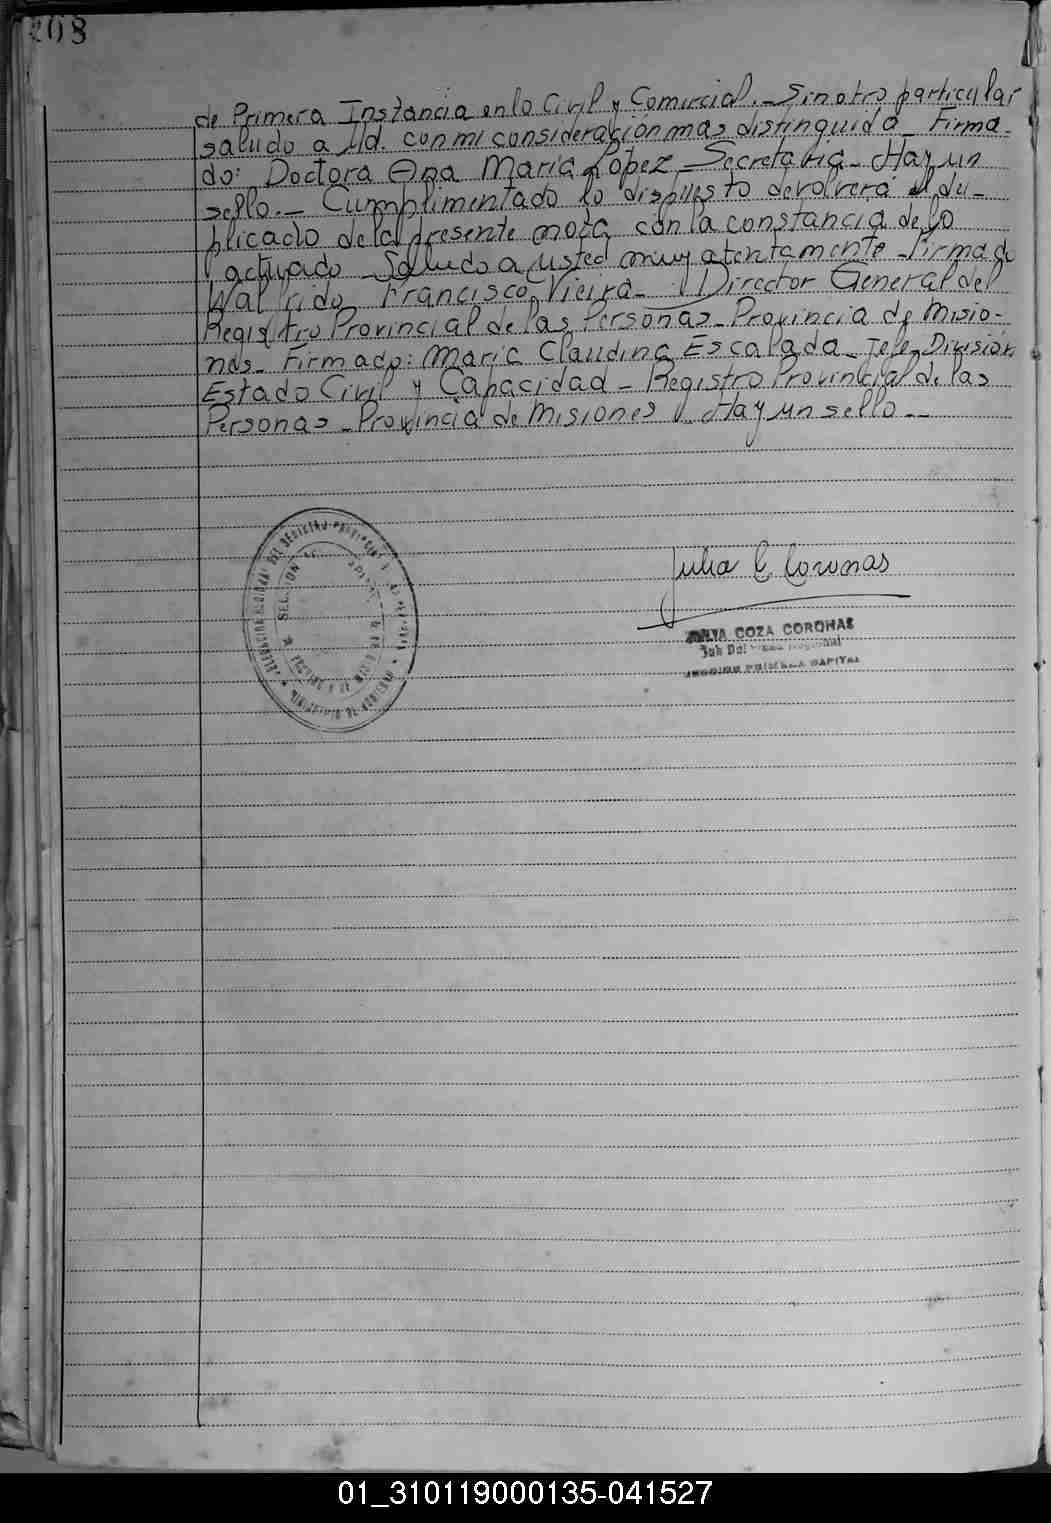 208
de Primera Instancia en lo Civil y Comercial._ Sin otro particular
saludo a Ud. con mi consideración mas distinguida_ Firma-
do: Doctora Ana Maria Lopez_ Secretaria_ Hay un
sello._ Cumplimentado lo dispuesto devolverá el du-
plicado de la presente nota con la constancia de lo
actuado_ Saludo a usted muy atentamente_ Firmado
Walfrido Francisco Vieira_ Director General del
Registro Provincial de las Personas_ Provincia de Misio-
nes_ Firmado: Maria Claudina Escalada_ Jefe División
Estado Civil y Capacidad_ Registro Provincial de las
Personas_ Provincia de Misiones_ Hay un sello_
Julia C Coronas
JULIA COZA CORONAS
SECCION PRIMERA CAPITAL
DEL REGISTRO PROVINCIAL
SECCION
01_310119000135-041527